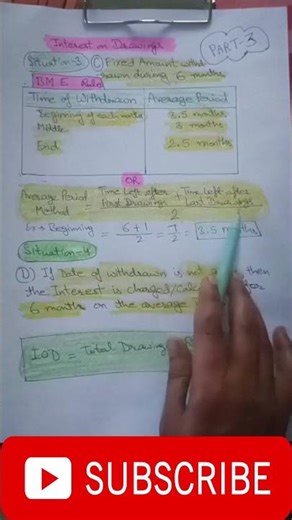 Interest on Drawings
PART-3
Situation-3 (C) Fixed Amount withd
rawn during 6 months
BME Rule
Time of Withdrawn Average Period
Beginning of each month 3.5 months
Middle 3 months
End 2.5 months
OR
Average Period Method = Time Left after First Drawings + Time Left after Last Drawings
2
Ex→ Beginning = 6+1/2 = 7/2 = 3.5 months
Situation-4
(D) If Date of withdrawn is not then
the Interest is charged/ for
6 months on the average
IOD = Total Drawing
SUBSCRIBE